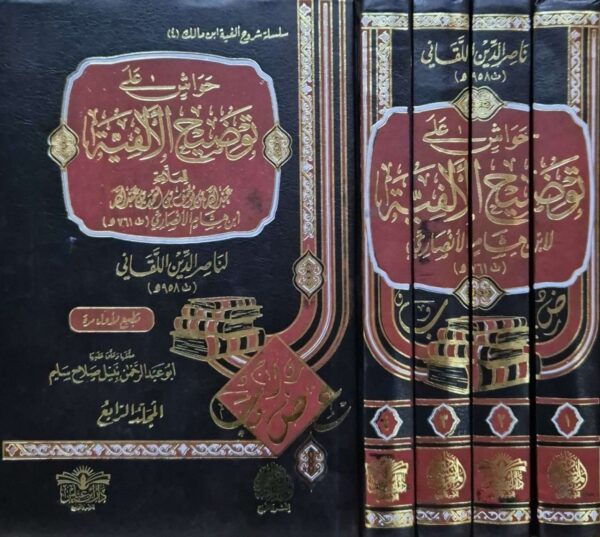 سلسلة شروح ألفية ابن مالك (٤)
حواش على
توضيح الألفية
للعلامة
عبد الله بن يوسف بن أحمد بن عبد الله
ابن هشام الأنصاري (ت ٧٦١ هـ)
لناصر الدين اللقاني
(ت ٩٥٨ هـ)
يطبع لأول مرة
أبو عبد الرحمن نبيل صلاح سليم
المجلد الرابع
ناصر الدين اللقاني
(ت ٩٥٨ هـ)
حواش على
توضيح الألفية
لابن هشام الأنصاري
(ت ٧٦١ هـ)
٤
٣
٢
١